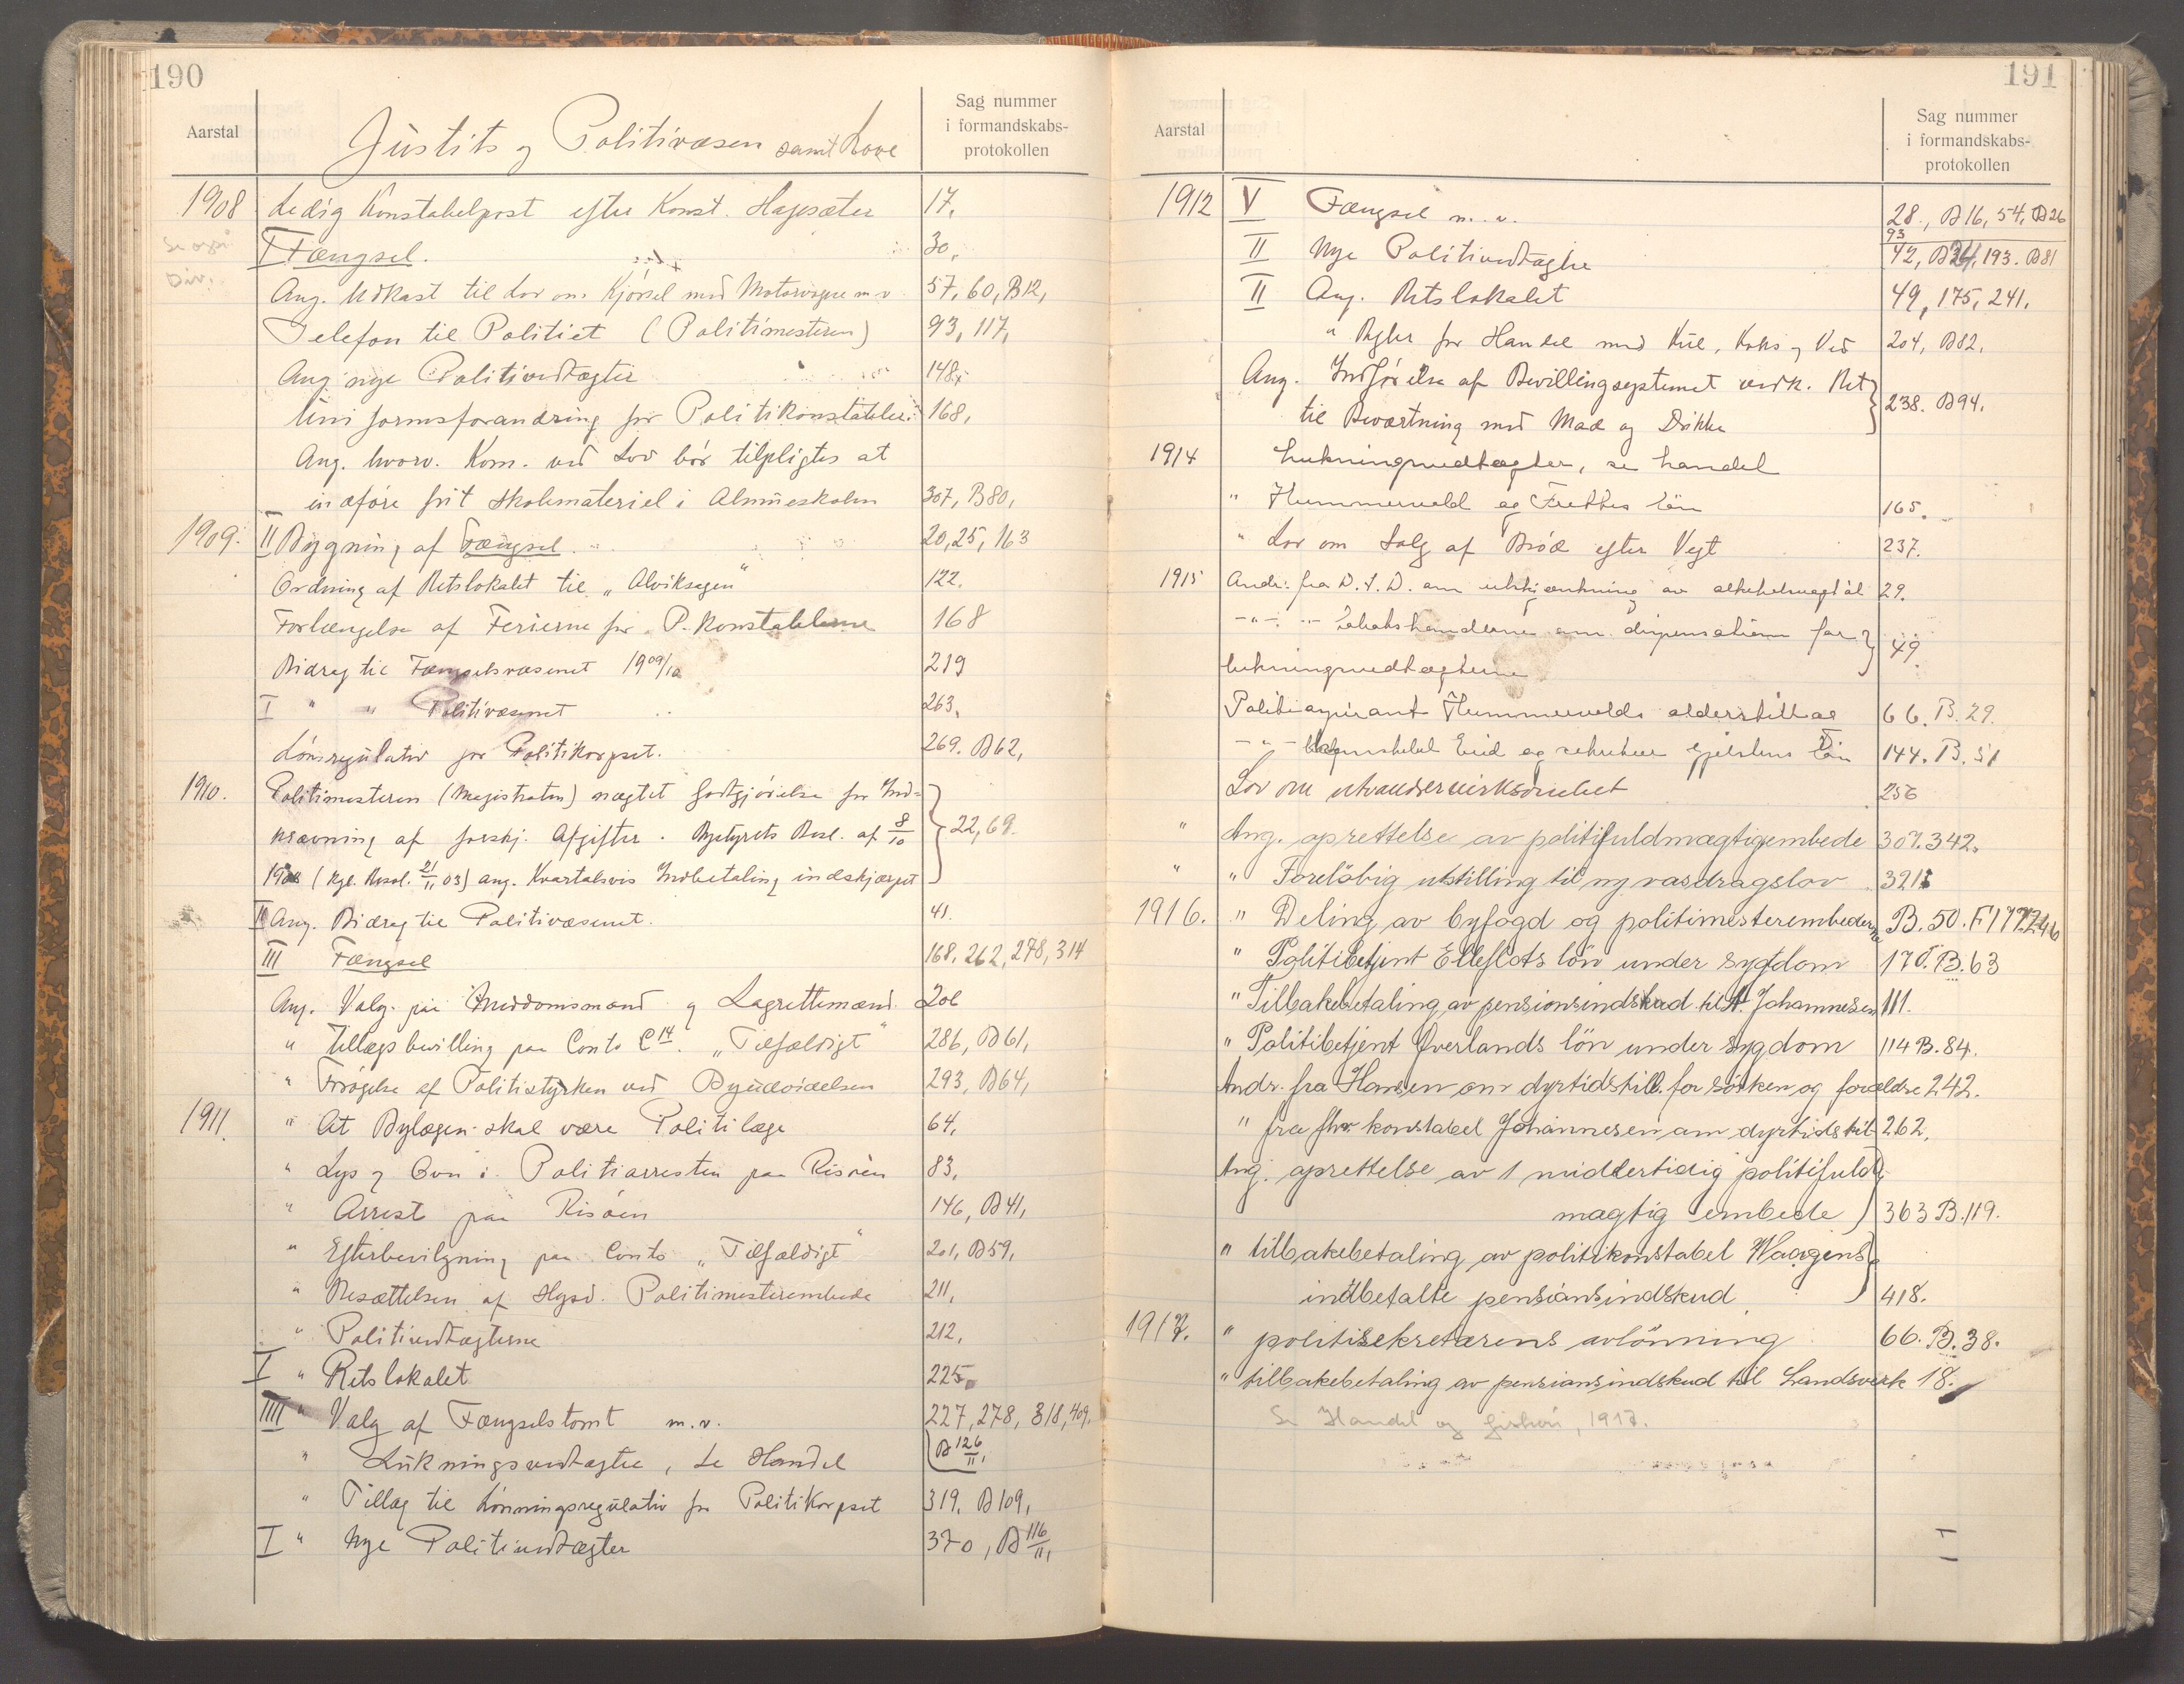 190
Aarstal
Justits og Politivæsen samt Love
Sag nummer
i formandskabs-
protokollen
1908 Ledig Konstabelpost efter Konst. Hagesæter 17,
Se også
Div.
I Fængsel. 30,
Ang. Udkast til Lov om Kjørsel med Motorvogne m v 57, 60, B12,
Telefon til Politiet (Politimesteren) 93, 117,
Ang. nye Politivedtægter 148,
Uniformsforandring for Politikonstabler 168,
Ang. hvorv. Kom. ved Lov bør tilpligtes at
indføre frit Skolemateriel i Almueskolen 307, B80,
1909. II Bygning af Fængsel. 20, 25, 163
Ordning af Retslokalet til „Alviksegen" 122.
Forlængelse af Ferierne for P. Konstablerne 168
Bidrag til Fængselsvæsenet 1909/10 219
I " " Politivæsenet 263,
Lønsregulativ for Politikorpset. 269. B62,
1910. Politimesteren (Magistraten) nægtet Godtgjørelse for Ind-
kræving af forskj. Afgifter. Bystyrets Besl. af 8/10 } 22, 69.
1908 (Kgl. Resol. 21/11 03) ang. Kvartalsvis Indbetaling indskjærpet
II Ang. Bidrag til Politivæsenet. 41.
III Fængsel 168, 262, 278, 314
Ang. Valg paa Meddomsmænd og Lagrettemænd 206
" Tillægsbevilling paa Conto C 14. „Tilfældigt" 286, B61,
" Forøgelse af Politistyrken ved Byudvidelsen 293, B64,
1911. " At Bylægen skal være Politilæge 64,
" Lys og Ovn i Politiarresten paa Risøen 83,
" Arrest paa Risøen 146, B41,
" Efterbevilgning paa Conto „Tilfældigt" 201, B59,
" Besættelsen af Hgsd. Politimesterembede 211,
" Politivedtægterne 212,
I " Retslokalet 225
IIII " Valg af Fængselstomt m.v. 227, 278, 318, 409.
B 126/11,
" Lukningsvedtægter, se Handel
" Tillæg til Lønningsregulativ for Politikorpset 319, B109,
I " Nye Politivedtægter 370, B 116/11,
191
Aarstal
Sag nummer
i formandskabs-
protokollen
1912 V Fængsel m. v. 28, B16, 54, B26
93
II Nye Politivedtægter 42, B24, 193. B81
II Ang. Retslokalet 49, 175, 241.
" Regler for Handel med Kul, Koks og Ved 204, B82.
Ang. Indførelse af Bevillingssystemet vedk. Ret
til Beværtning med Mad og Drikke } 238. B94.
1914 Lukningsvedtægter, se handel
" Hummervold og Frettes løn 165.
" Lov om Salg af Brød efter Vegt 237.
1915 Andr. fra D. S. D. om utskjænkning av alkoholsvagt øl 29.
-"- " Tobakshandlerne om dispensation for } 49
lukningsvedtægterne
Politiaspirant Hummervolds alderstillæg 66. B. 29.
-"- Eid og løn 144. B. 51
Lov om utvandrervirksomhet 256
" Ang. oprettelse av politifuldmægtigembede 307. 342.
" " Foreløbig utstilling til ny vasdragslov 321
1916. " Deling av byfogd og politimesterembederne B. 50. F 177. 246
" Politibetjent Elleflots løn under sygdom 170. B. 63
" Tilbakebetaling av pensionsindskud til A. Johannesen 111.
" Politibetjent Øverlands løn under sygdom 114 B. 84.
Andr. fra Hansen om dyrtidstill. for søsken og forældre 242.
" fra fhv. konstabel Johannesen om dyrtidstil 262.
Ang. oprettelse av 1 midlertidig politifuld-
magtig embede } 363 B. 119.
" tilbakebetaling av politikonstabel Waagens
indbetalte pensionsindskud } 418.
1917. " politisekretærens avlønning 66. B. 38.
" tilbakebetaling av pensionsindskud til Landsverk 18.
Se Handel og fiskeri, 1917.